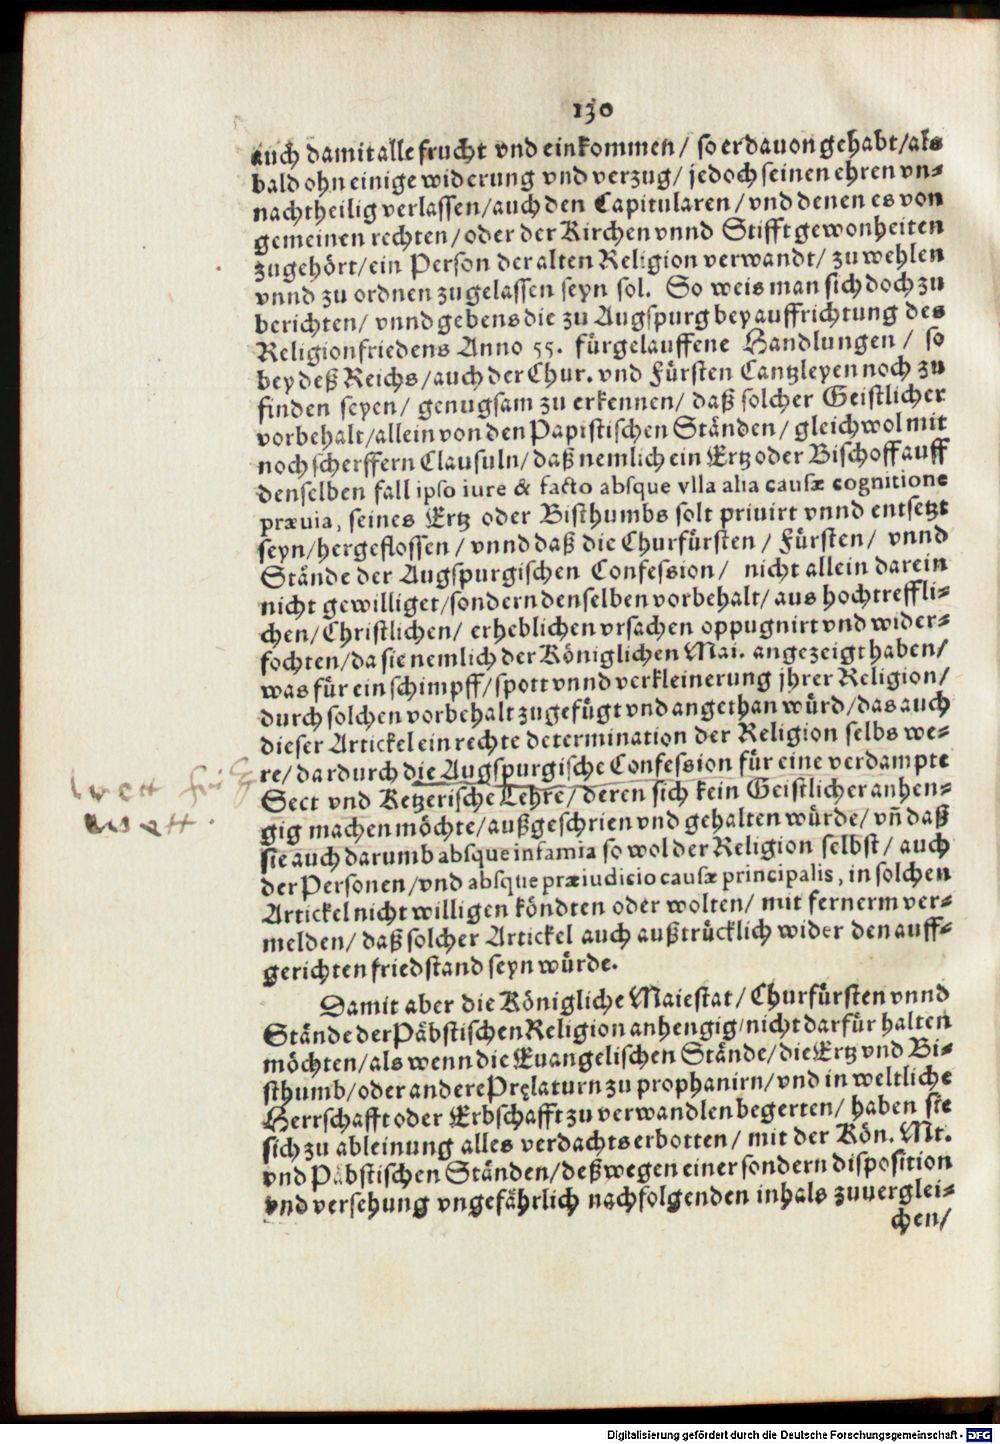 130
auch damit alle frucht vnd einkommen / so er dauon gehabt / als
bald ohn einige widerung vnd verzug / jedoch seinen ehren vn-
nachtheilig verlassen / auch den Capitularen / vnd denen es von
gemeinen rechten / oder der Kirchen vnnd Stifft gewonheiten
zugehört / ein Person der alten Religion verwandt / zu wehlen
vnnd zu ordnen zugelassen seyn sol. So weis man sich doch zu
berichten / vnnd gebens die zu Augspurg bey auffrichtung des
Religionfriedens Anno 55. fürgelauffene Handlungen / so
bey deß Reichs / auch der Chur. vnd Fürsten Cantzleyen noch zu
finden seyen / genugsam zu erkennen / daß solcher Geistlicher
vorbehalt / allein von den Papistischen Ständen / gleichwol mit
noch scherffern Clausuln / daß nemlich ein Ertz oder Bischoff auff
denselben fall ipso iure & facto absque vlla alia causæ cognitione
præuia, seines Ertz oder Bisthumbs solt priuirt vnnd entsetzt
seyn / hergeflossen / vnnd daß die Churfürsten / Fürsten / vnnd
Stände der Augspurgischen Confession / nicht allein darein
nicht gewilliget / sondern denselben vorbehalt / aus hochtreffli-
chen / Christlichen / erheblichen vrsachen oppugnirt vnd wider-
fochten / da sie nemlich der Königlichen Mai. angezeigt haben /
was für ein schimpff / spott vnnd verkleinerung jhrer Religion /
durch solchen vorbehalt zugefügt vnd angethan würd / das auch
dieser Artickel ein rechte determination der Religion selbs we-
re / dardurch die Augspurgische Confession für eine verdampte
Sect vnd Ketzerische Lehre / deren sich kein Geistlicher anhen-
gig machen möchte / außgeschrien vnd gehalten würde / vñ daß
sie auch darumb absque infamia so wol der Religion selbst / auch
der Personen / vnd absque præiudicio causæ principalis, in solchen
Artickel nicht willigen köndten oder wolten / mit fernerm ver-
melden / daß solcher Artickel auch außtrücklich wider den auff-
gerichten friedstand seyn würde.
Damit aber die Königliche Maiestat / Churfürsten vnnd
Stände der Päbstischen Religion anhengig / nicht darfür halten
möchten / als wenn die Euangelischen Stände / die Ertz vnd Bi-
sthumb / oder andere Pręlaturn zu prophanirn / vnd in weltliche
Herrschafft oder Erbschafft zu verwandlen begerten / haben sie
sich zu ableinung alles verdachts erbotten / mit der Kön. Mt.
vnd Päbstischen Ständen / deßwegen einer sondern disposition
vnd versehung vngefährlich nachfolgenden inhals zuuerglei-
chen /
Digitalisierung gefördert durch die Deutsche Forschungsgemeinschaft - DFG